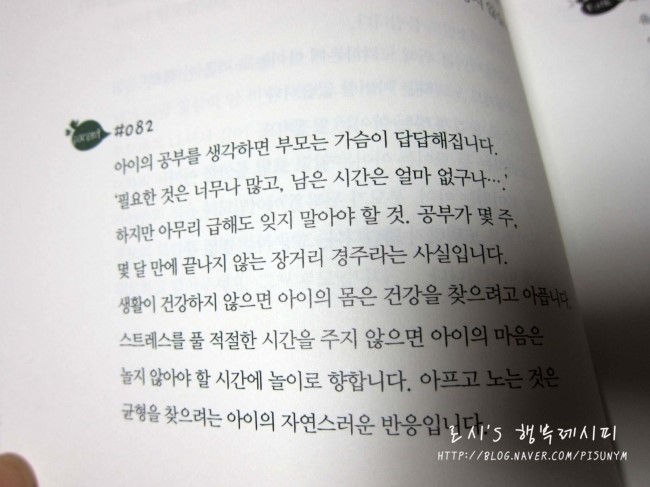 #082
아이의 공부를 생각하면 부모는 가슴이 답답해집니다.
‘필요한 것은 너무나 많고, 남은 시간은 얼마 없구나….’
하지만 아무리 급해도 잊지 말아야 할 것. 공부가 몇 주,
몇 달 만에 끝나지 않는 장거리 경주라는 사실입니다.
생활이 건강하지 않으면 아이의 몸은 건강을 찾으려고 아픕니다.
스트레스를 풀 적절한 시간을 주지 않으면 아이의 마음은
놀지 않아야 할 시간에 놀이로 향합니다. 아프고 노는 것은
균형을 찾으려는 아이의 자연스러운 반응입니다.
로시's 행복레시피
HTTP://BLOG.NAVER.COM/PISUNYM